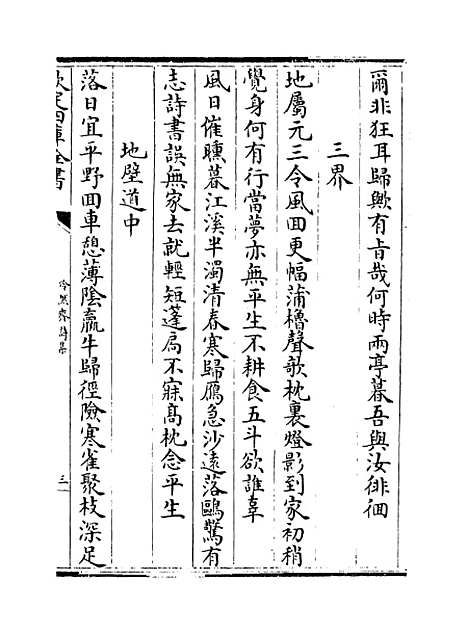 爾非狂耳歸歟有旨哉何時兩亭暮吾與汝徘徊
三界
地屬元三令風回更幅蒲櫓聲歌枕裏燈影到家初稍
覺身何有行當夢亦無平生不耕食五斗欲誰辜
風日催曛暮江溪半濁清春寒歸鴈急沙遠落鷗驚有
志詩書誤無家去就輕短蓬扃不寐高枕念平生
地壁道中
落日宜平野回車憩薄陰羸牛歸徑險寒雀聚枝深足
欽定四庫全書
三